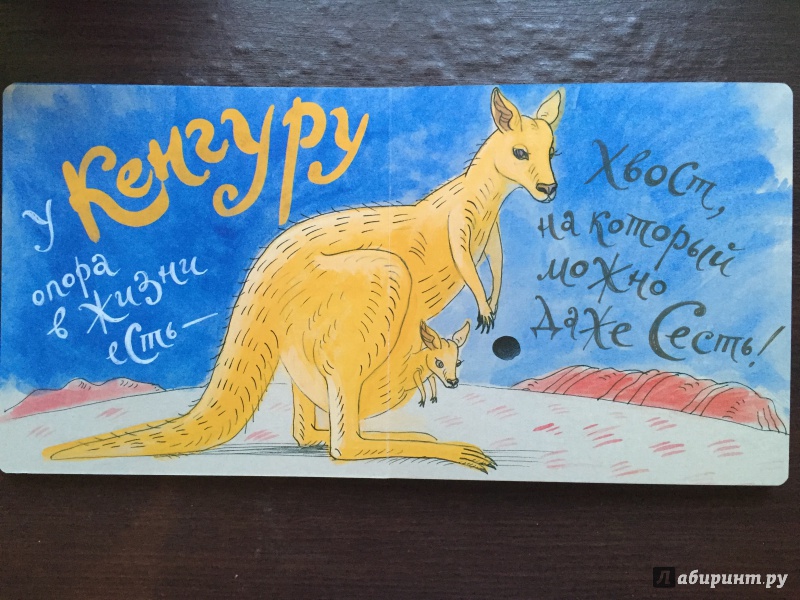 У
Кенгуру
опора
в жизни
есть —
Хвост,
на который
можно
даже Сесть!
Лабиринт.ру